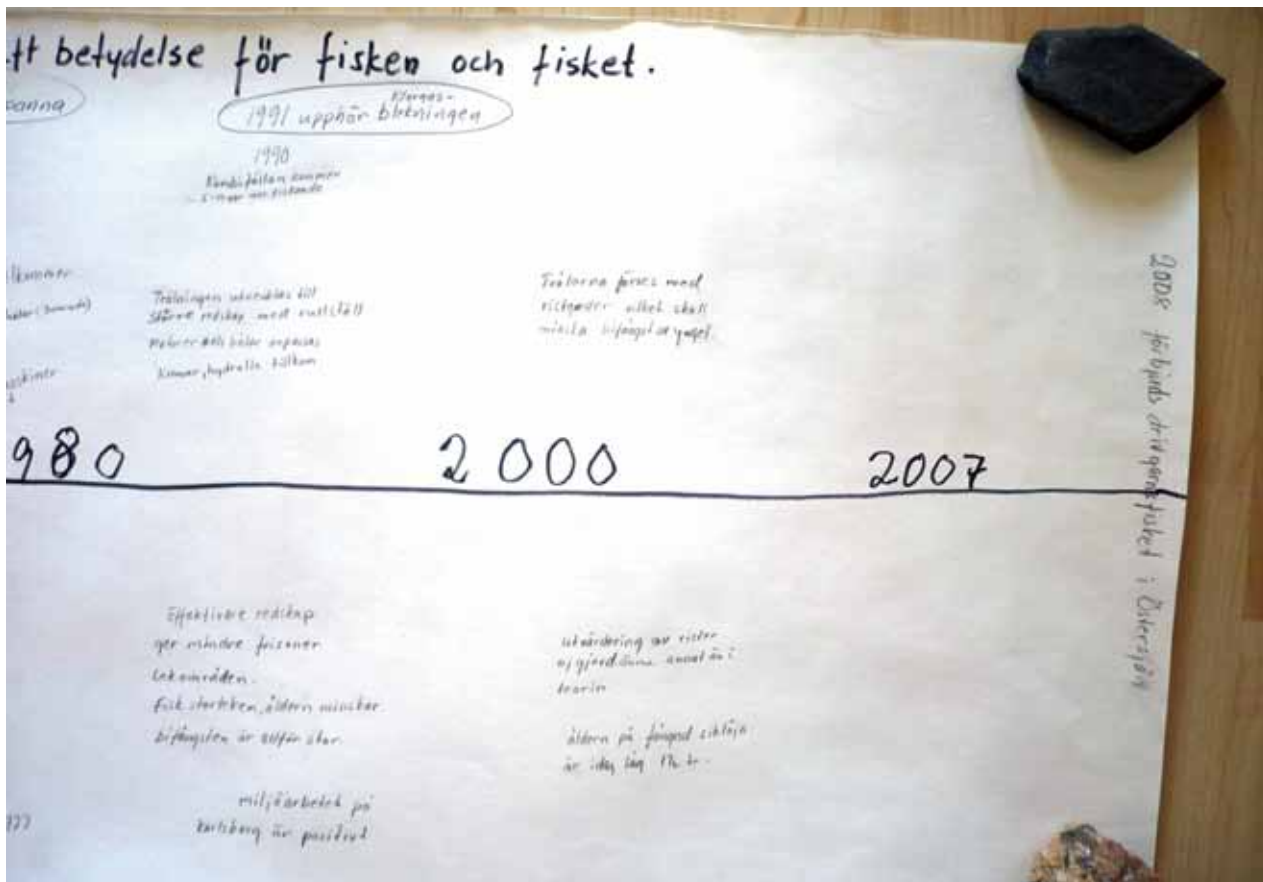 tt betydelse för fisken och fisket.
panna
1991 upphör blekningen
1990
Kombifällan kommer
Trålningen utvecklas till
större redskap med rullställ
Motorer och båtar anpassas
Kranar, hydralla tillkom
Trålarna förses med
ristgaller vilket skall
minska bifångst av yngel.
980
2000
2007
2008 förbjuds drivgarnsfisket i Östersjön
Effektivare redskap
ger mindre frizoner
lekområden.
Fiskstorleken, åldern minskar.
bifångsten är allför stor.
utvärdering av rister
ej gjord ännu annat än i
teorin
åldern på fångad siklöja
är idag låg
miljöarbetet på
Karlsborg är positivt